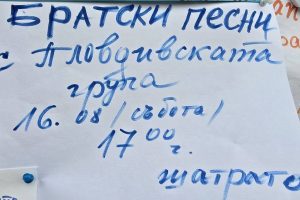 БРАТСКИ ПЕСНИ
с Пловдивската
група
16.08 /събота/
17 00 г.
шатрата